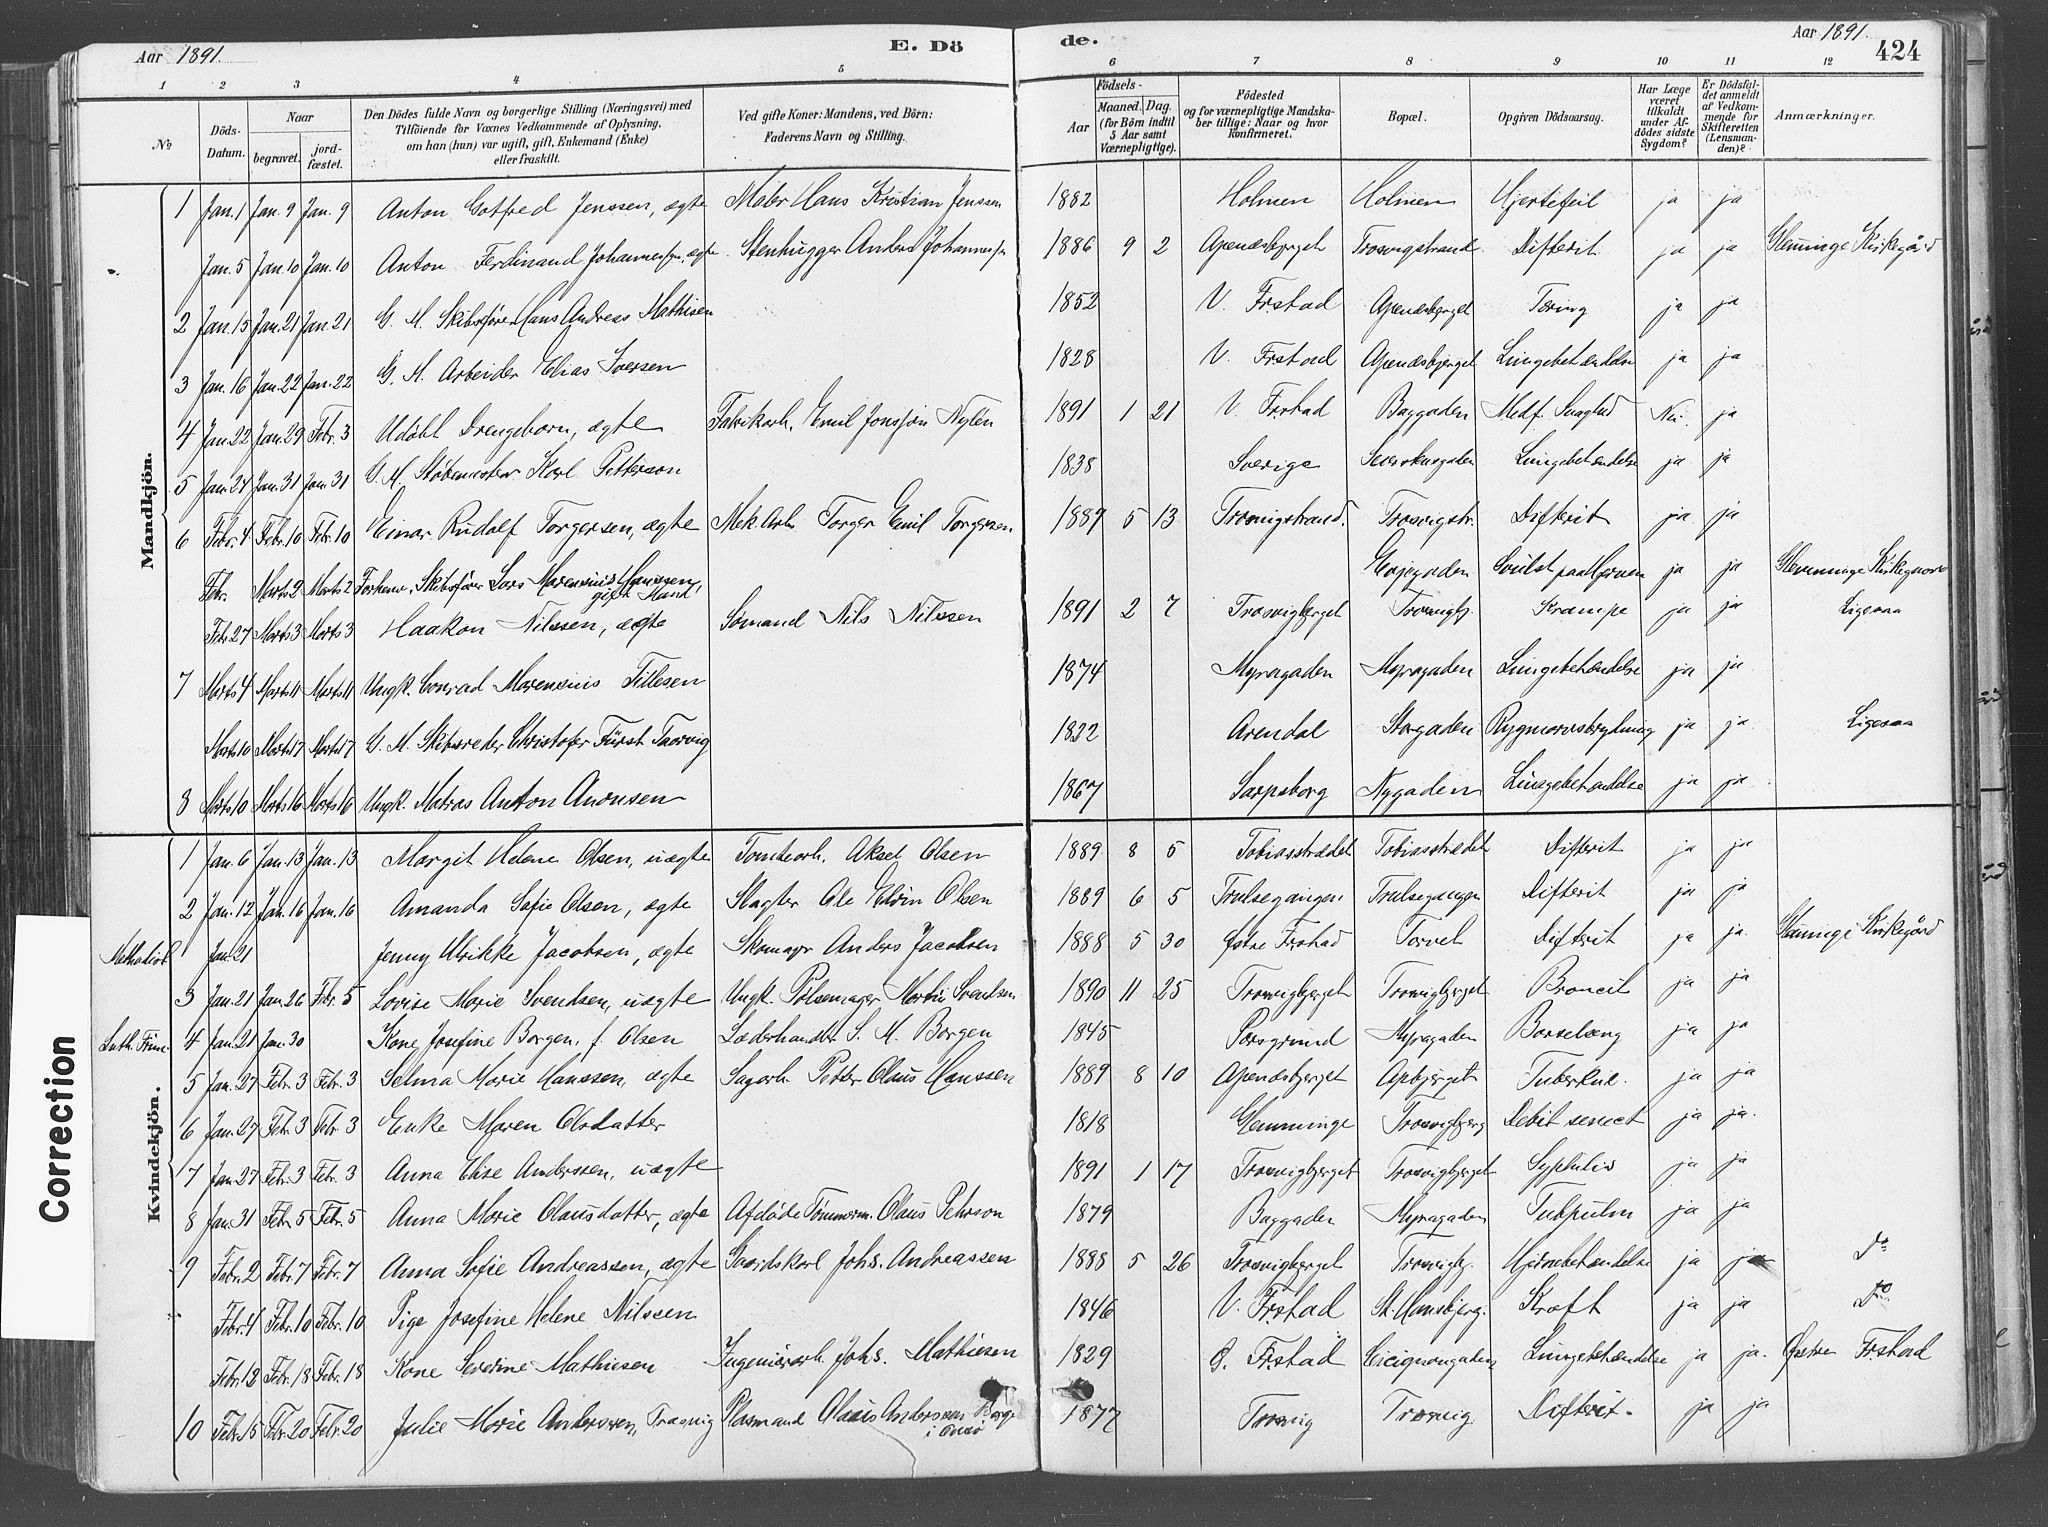 Aar 1891. E. Dö
de. Aar 1891. 424
1 2 3 4 5 6 7 8 9 10 11 12
№ Döds-Datum. Naar begravet. jord-fæstet. Den Dödes fulde Navn og borgerlige Stilling (Næringsvei) med Tilföiende for Voxnes Vedkommende af Oplysning, om han (hun) var ugift, gift, Enkemand (Enke) eller fraskilt. Ved gifte Koner: Mandens, ved Börn: Faderens Navn og Stilling. Födsels- Aar Maaned. Dag. (for Börn indtil 5 Aar samt Værnepligtige). Födested og for værnepligtige Mandskaber tillige: Naar og hvor Konfirmeret. Bopæl. Opgiven Dödsaarsag. Har Læge været tilkaldt under Afdödes sidste Sygdom? Er Dödsfaldet anmeldt af Vedkommende for Skifteretten (Lensmanden)? Anmærkninger.
Mandkjön.
1 Jan. 1 Jan. 9 Jan. 9 Anton Gotfred Jenssen, ægte Maler Hans Kristian Jenssen 1882 Holmen Holmen Hjertefeil ja ja
Jan. 5 Jan. 10 Jan. 10 Anton Ferdinand Johannessen, ægte Stenhugger Anders Johannessen 1886 9 2 Apenæsbjerget Trosvigstrand Difterit ja ja Glemminge Kirkegård
2 Jan. 15 Jan. 21 Jan. 21 G. M. Skibsfører Hans Andreas Mathisen 1852 V. Frstad Apenæsbjerget Tæring ja ja
3 Jan. 16 Jan. 22 Jan. 22 G. M. Arbeider Elias Iversen 1828 V. Frstad Apenæsbjerget Lungebetændelse ja ja
4 Jan. 22 Jan. 29 Febr. 3 Udøbt Drengebarn, ægte Fabrikarb. Emil Jonsson Nylén 1891 1 21 V. Frstad Baggaden Medf. Svaghed Nei. ja
5 Jan. 24 Jan. 31 Jan. 31 G. M. Støbemester Karl Petterson 1838 Sverige Lungebetændelse ja ja
6 Febr. 4 Febr. 10 Febr. 10 Einar Rudolf Torgersen, ægte Mek. Arb. Torger Emil Torgersen 1889 5 13 Trosvigstrand. Trosvigstr. Difterit ja ja
Febr. Marts 2 Marts 2 Forhenv. Skibsfører Lars Marensius Hanssen, gift Mand Svulst paa Hjernen ja ja Glemminge Kirkegaard
Febr. 27 Marts 3 Marts 3 Haakon Nilssen, ægte Sømand Nils Nilssen 1891 2 7 Trosvigbjerget Trosvigbj. Krampe ja ja Ligesaa
7 Marts 4 Marts 11 Marts 11 Ungk. Conrad Marensius Tillesen 1874 Myragaden Myragaden Lungebetændelse ja ja
Marts 10 Marts 17 Marts 17 G. M. Skibsreder Christofer Fürst Taarvig 1822 Arendal Storgaden ja ja Ligesaa
8 Marts 10 Marts 16 Marts 16 Ungk. Matias Anton Anonsen 1867 Sarpsborg Nygaden Lungebetændelse ja ja
Kvindekjön.
1 Jan. 6 Jan. 13 Jan. 13 Margit Helene Olsen, uægte Tomtearb. Aksel Olsen 1889 8 5 Tobiasstrædet Tobiasstrædet Difterit ja ja
2 Jan. 12 Jan. 16 Jan. 16 Amanda Sofie Olsen, ægte Slagter Ole Edvin Olsen 1889 6 5 Trulsegangen Trulsegangen Difterit ja ja
Methodist 1 Jan. 21 Jenny Ulrikke Jacobsen, ægte Skomagr Anders Jacobsen 1888 5 30 Østre Frstad Torvet Difterit ja ja. Glemminge Kirkegård
3 Jan. 21 Jan. 26 Febr. 5 Lovise Marie Svendsen, uægte Ungk. Pølsemager Martin Svendsen 1890 11 25 Trosvigbjerget Trosvigbjerget Broncit ja ja
Luth. Frim. 4 Jan. 21 Jan. 30 Kone Josefine Borgen, f. Olsen Læderhandler S. M. Borgen 1845 Porsgrund Myragaden ja ja
5 Jan. 27 Febr. 3 Febr. 3 Selma Marie Hanssen, ægte Sagarb. Petter Olaus Hanssen 1889 8 10 Apenæsbjerget Apbjerget Tuberkul. ja ja
6 Jan. 27 Febr. 3 Febr. 3 Enke Maren Olsdatter 1818 Glemminge Trosvigbjerg Debil senect ja ja.
7 Jan. 27 Febr. 3 Febr. 3 Anna Elise Anderssen, uægte 1891 1 17 Trosvigbjerget Trosvigbjerget Syphilis ja ja
8 Jan. 31 Febr. 5 Febr. 5 Anna Marie Olausdatter, ægte Afdøde Tømmerm. Olaus Pehrson 1879 Baggaden Myragaden Tubpulm ja ja
9 Febr. 2 Febr. 7 Febr. 7 Anna Sofie Andreassen, ægte Gaardskarl Johs. Andreassen 1888 5 26 Trosvigbjerget Trosvigbj. Hjernebetændelse ja ja Do
Febr. 4 Febr. 10 Febr. 10 Pige Josefine Helene Nilssen 1846 V. Frstad St. Hansbjerg. Kræft ja ja Do
Febr. 12 Febr. 18 Febr. 18 Kone Severine Mathiesen Ingeniørarb. Johs. Mathiesen 1829 Ø. Frstad Cicignongaden Lungebetændelse ja ja. Østre Frstad
10 Febr. 15 Febr. 20 Febr. 20 Julie Marie Anderssen, Trosvig Pladsmand Olaus Anderssen i Onsø 1877 Trosvig Trosvig Difterit. ja ja
Correction